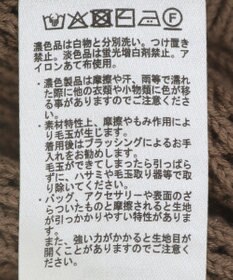 濃色品は白物と分別洗い。つけ置き
禁止。淡色は蛍光増白剤禁止。ア
イロンあて布使用。
・濃色製品は摩擦や汗、雨等で濡れ
た際に他の衣類や小物類に色が移
る事がありますのでご注意下さい。
・素材特性上、摩擦やもみ作用によ
り毛玉が生じます。
着用後はブラッシングによるお手
入れをお勧めします。
毛玉ができてしまったら引っぱらず
に、ハサミや毛玉取り器等で取
り除いてください。
・バッグ、アクセサリーや表面のざ
らついたものと摩擦されると生地
が引っかかりやすい特性がありま
す。
また、強い力がかかると生地目が
開くことがありますのでご注意く